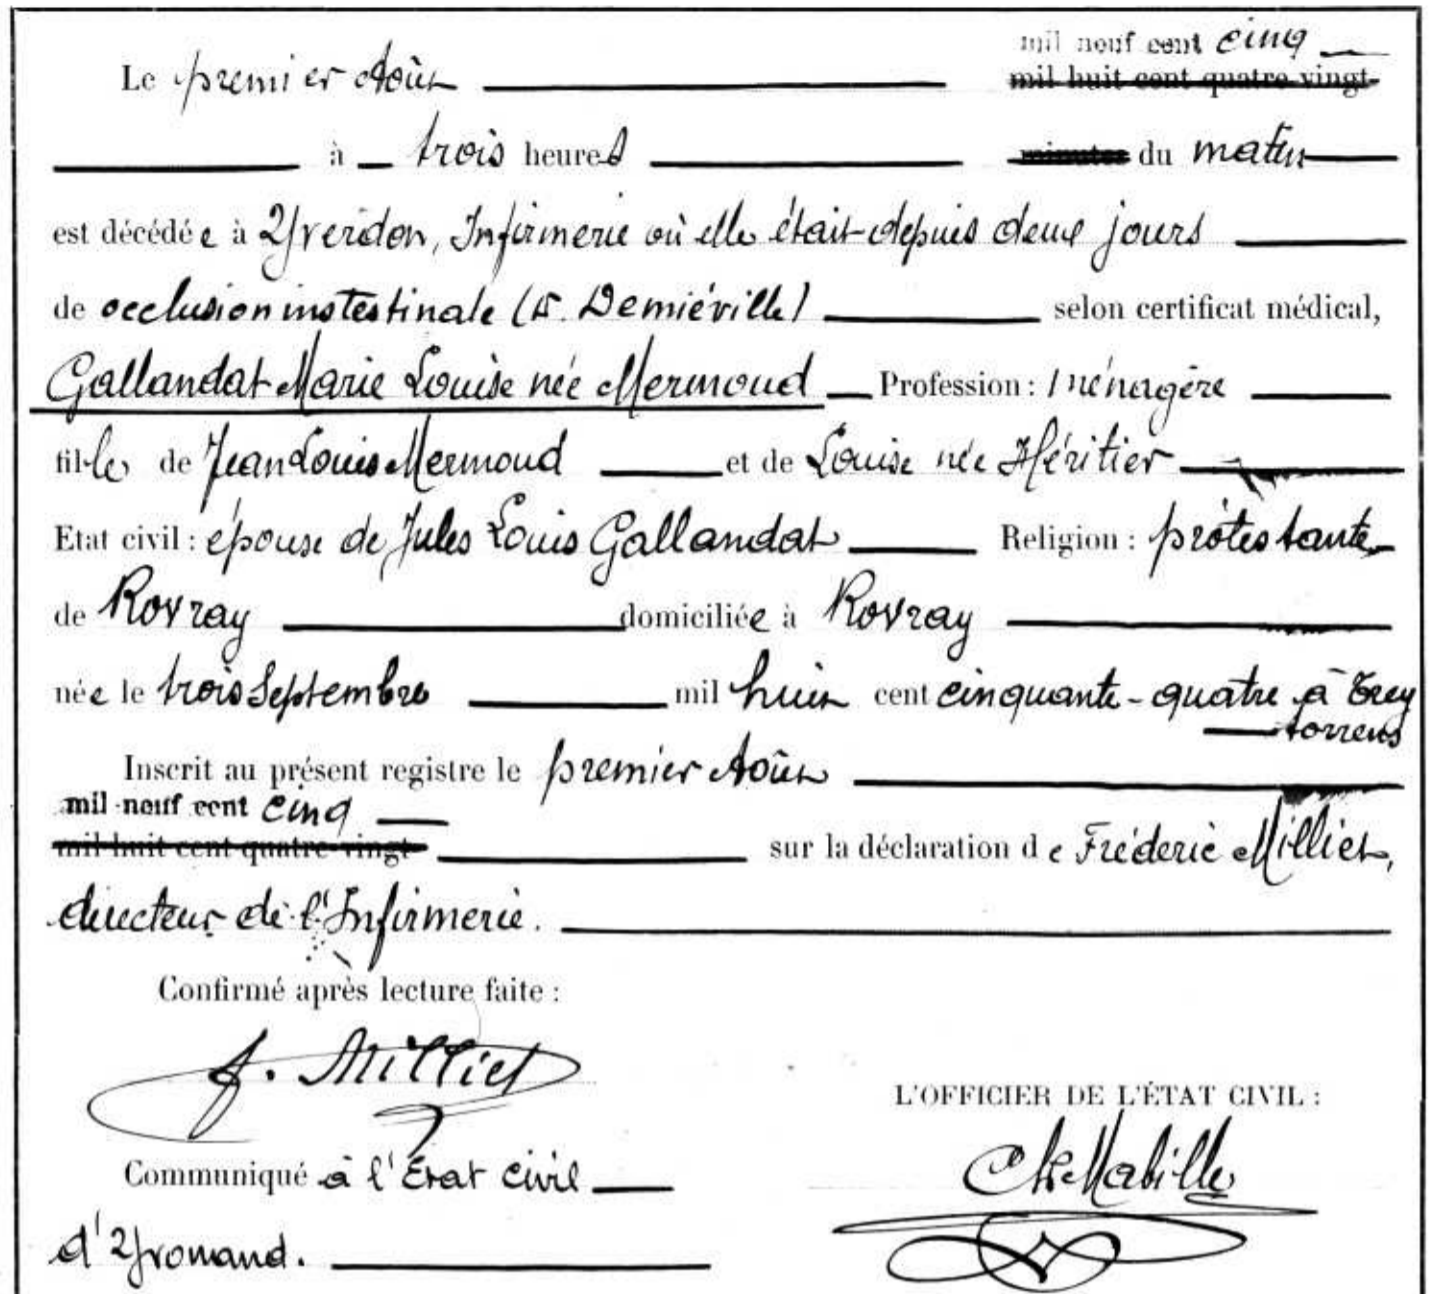 mil neuf cent cinq
Le premier Août mil huit cent quatre-vingt-
à trois heures minutes du matin
est décédée à Yverdon, Infirmerie où elle était depuis deux jours
de occlusion instestinale (Dr. Demiéville) selon certificat médical,
Gallandat Marie Louise née Mermoud Profession : Ménagère
fille de Jean Louis Mermoud et de Louise née Héritier
Etat civil : épouse de Jules Louis Gallandat Religion : protestante
de Rovray domiciliée à Rovray
née le trois Septembre mil huit cent cinquante-quatre à Trey
torrens
Inscrit au présent registre le premier Août
mil neuf cent cinq
mil huit cent quatre-vingt- sur la déclaration de Fréderic Milliet,
directeur de l'Infirmerie.
Confirmé après lecture faite :
f. Milliet
L'OFFICIER DE L'ÉTAT CIVIL :
Communiqué à l'Etat civil Ch. Mabille
d'Yvonand.